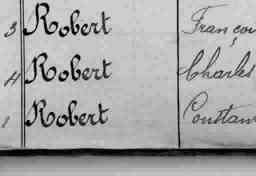 3 Robert Françoi
4 Robert Charles
1 Robert Constan